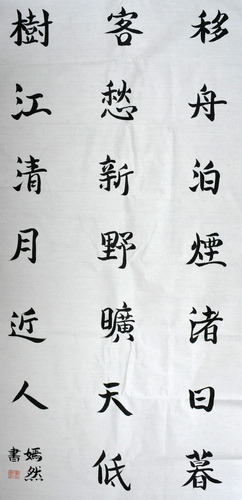 移舟泊煙渚日暮
客愁新野曠天低
樹江清月近人
嫣然
書